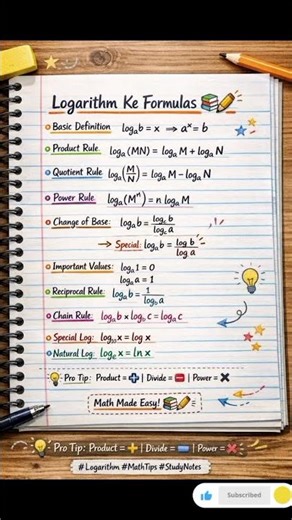 Logarithm Ke Formulas
Basic Definition logₐb = x ⟹ aˣ = b
Product Rule logₐ (MN) = logₐ M + logₐ N
Quotient Rule logₐ(M/N) = logₐ M − logₐ N
Power Rule logₐ (Mⁿ) = n logₐ M
Change of Base: logₐb = log꜀ b / log꜀ a
→ Special: logₐb = log b / log a
Important Values: logₐ1 = 0
logₐa = 1
Reciprocal Rule: logₐb = 1 / log_b a
Chain Rule: logₐb × log_b c = logₐc
Natural Log: logₑ x = ln x
Pro Tip: Product = ➕ | Divide = ➖ | Power = ✖
Math Made Easy!
Pro Tip: Product = ➕ | Divide = ➖ | Power = ✖
# Logarithm #MathTips #StudyNotes
Subscribed